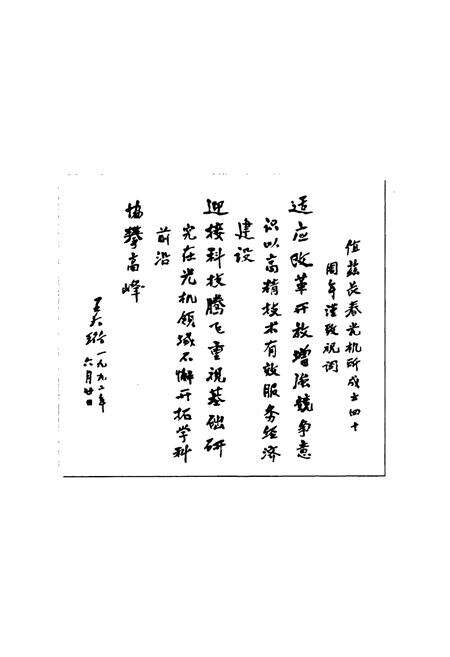 值兹长春光机所成立四十
周年谨致祝词
适应改革开放增强竞争意
识以高精技术有效服务经济
建设
迎接科技腾飞重视基础研
究在光机领域不懈开拓学科
前沿
协攀高峰
王大珩 一九九二年
六月廿日